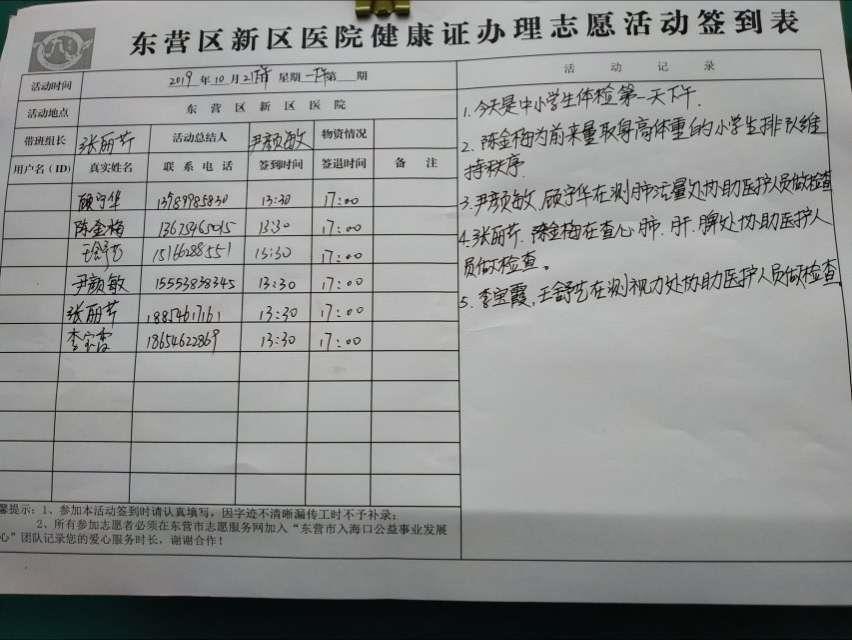 东营区新区医院健康证办理志愿活动签到表
活动时间 2019年10月21日 星期一 第 期
活动地点 东营区新区医院
带班组长 张丽芹 活动总结人 尹颜敏 物资情况
用户名(ID) 真实姓名 联系电话 签到时间 签退时间 备注
顾守华 13789985830 13:30 17:00
陈金梅 13:30 17:00
王舒艺 15166288551 17:00
尹颜敏 15553838345 13:30 17:00
张丽芹 18854617161 13:30 17:00
李宝霞 18654622869 13:30 17:00
馨提示:1、参加本活动签到时请认真填写,因字迹不清晰漏传工时不予补录;
2、所有参加志愿者必须在东营市志愿服务网加入“东营市入海口公益事业发展
心”团队记录您的爱心服务时长,谢谢合作!
活动记录
1.今天是中小学生体检第一天下午.
2.陈金梅为前来量取身高体重的小学生排队维
持秩序.
3.尹颜敏、顾守华在测肺活量处协助医护人员做检查
4.张丽芹.陈金梅在查心.肺.肝.脾处协助医护人
员做检查。
5.李宝霞,王舒艺在测视力处协助医护人员做检查.